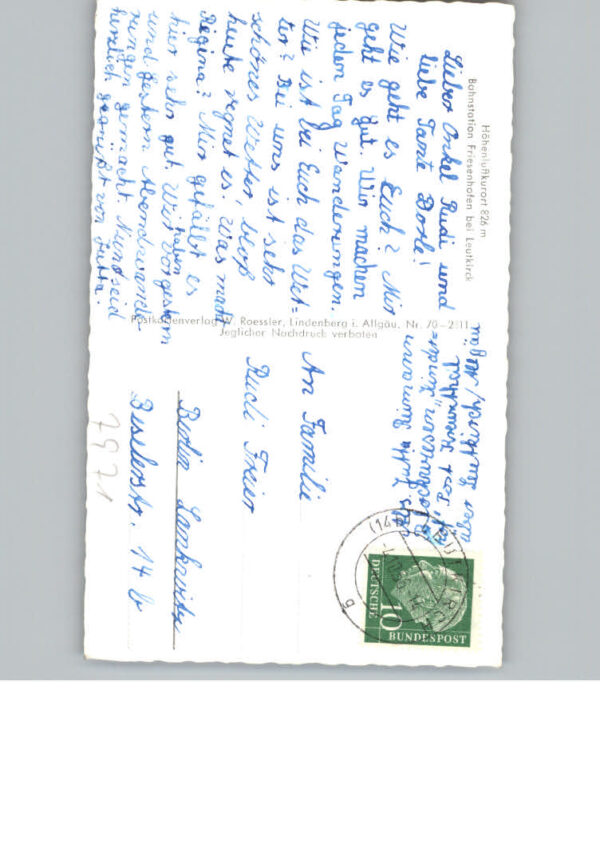 Höhenluftkurort 826 m
Bahnstation Friesenhofen bei Leutkirch
Lieber Onkel Rudi und
liebe Tante Dorle!
Wie geht es Euch? Mir
geht es gut. Wir machen
jeden Tag Wanderungen.
Wie ist bei Euch das Wet=
ter? Bei uns ist sehr
schönes Wetter, bloß
heute regnet es. Was macht
Regina? Mir gefällt es
hier sehr gut. Wir haben vorgestern
und gestern Abendwande=
rungen gemacht. Nun seid
herzlich gegrüßt von Jutta.
Postkartenverlag W. Roessler, Lindenberg i. Allgäu, Nr. 70-2811
Jeglicher Nachdruck verboten
Post Kreuzthal
über Leutkirch/Allgäu
An Familie
Rudi Freier
Berlin Lankwitz
Beselerstr. 14 b
7971
DEUTSCHE
BUNDESPOST
10
(14
b